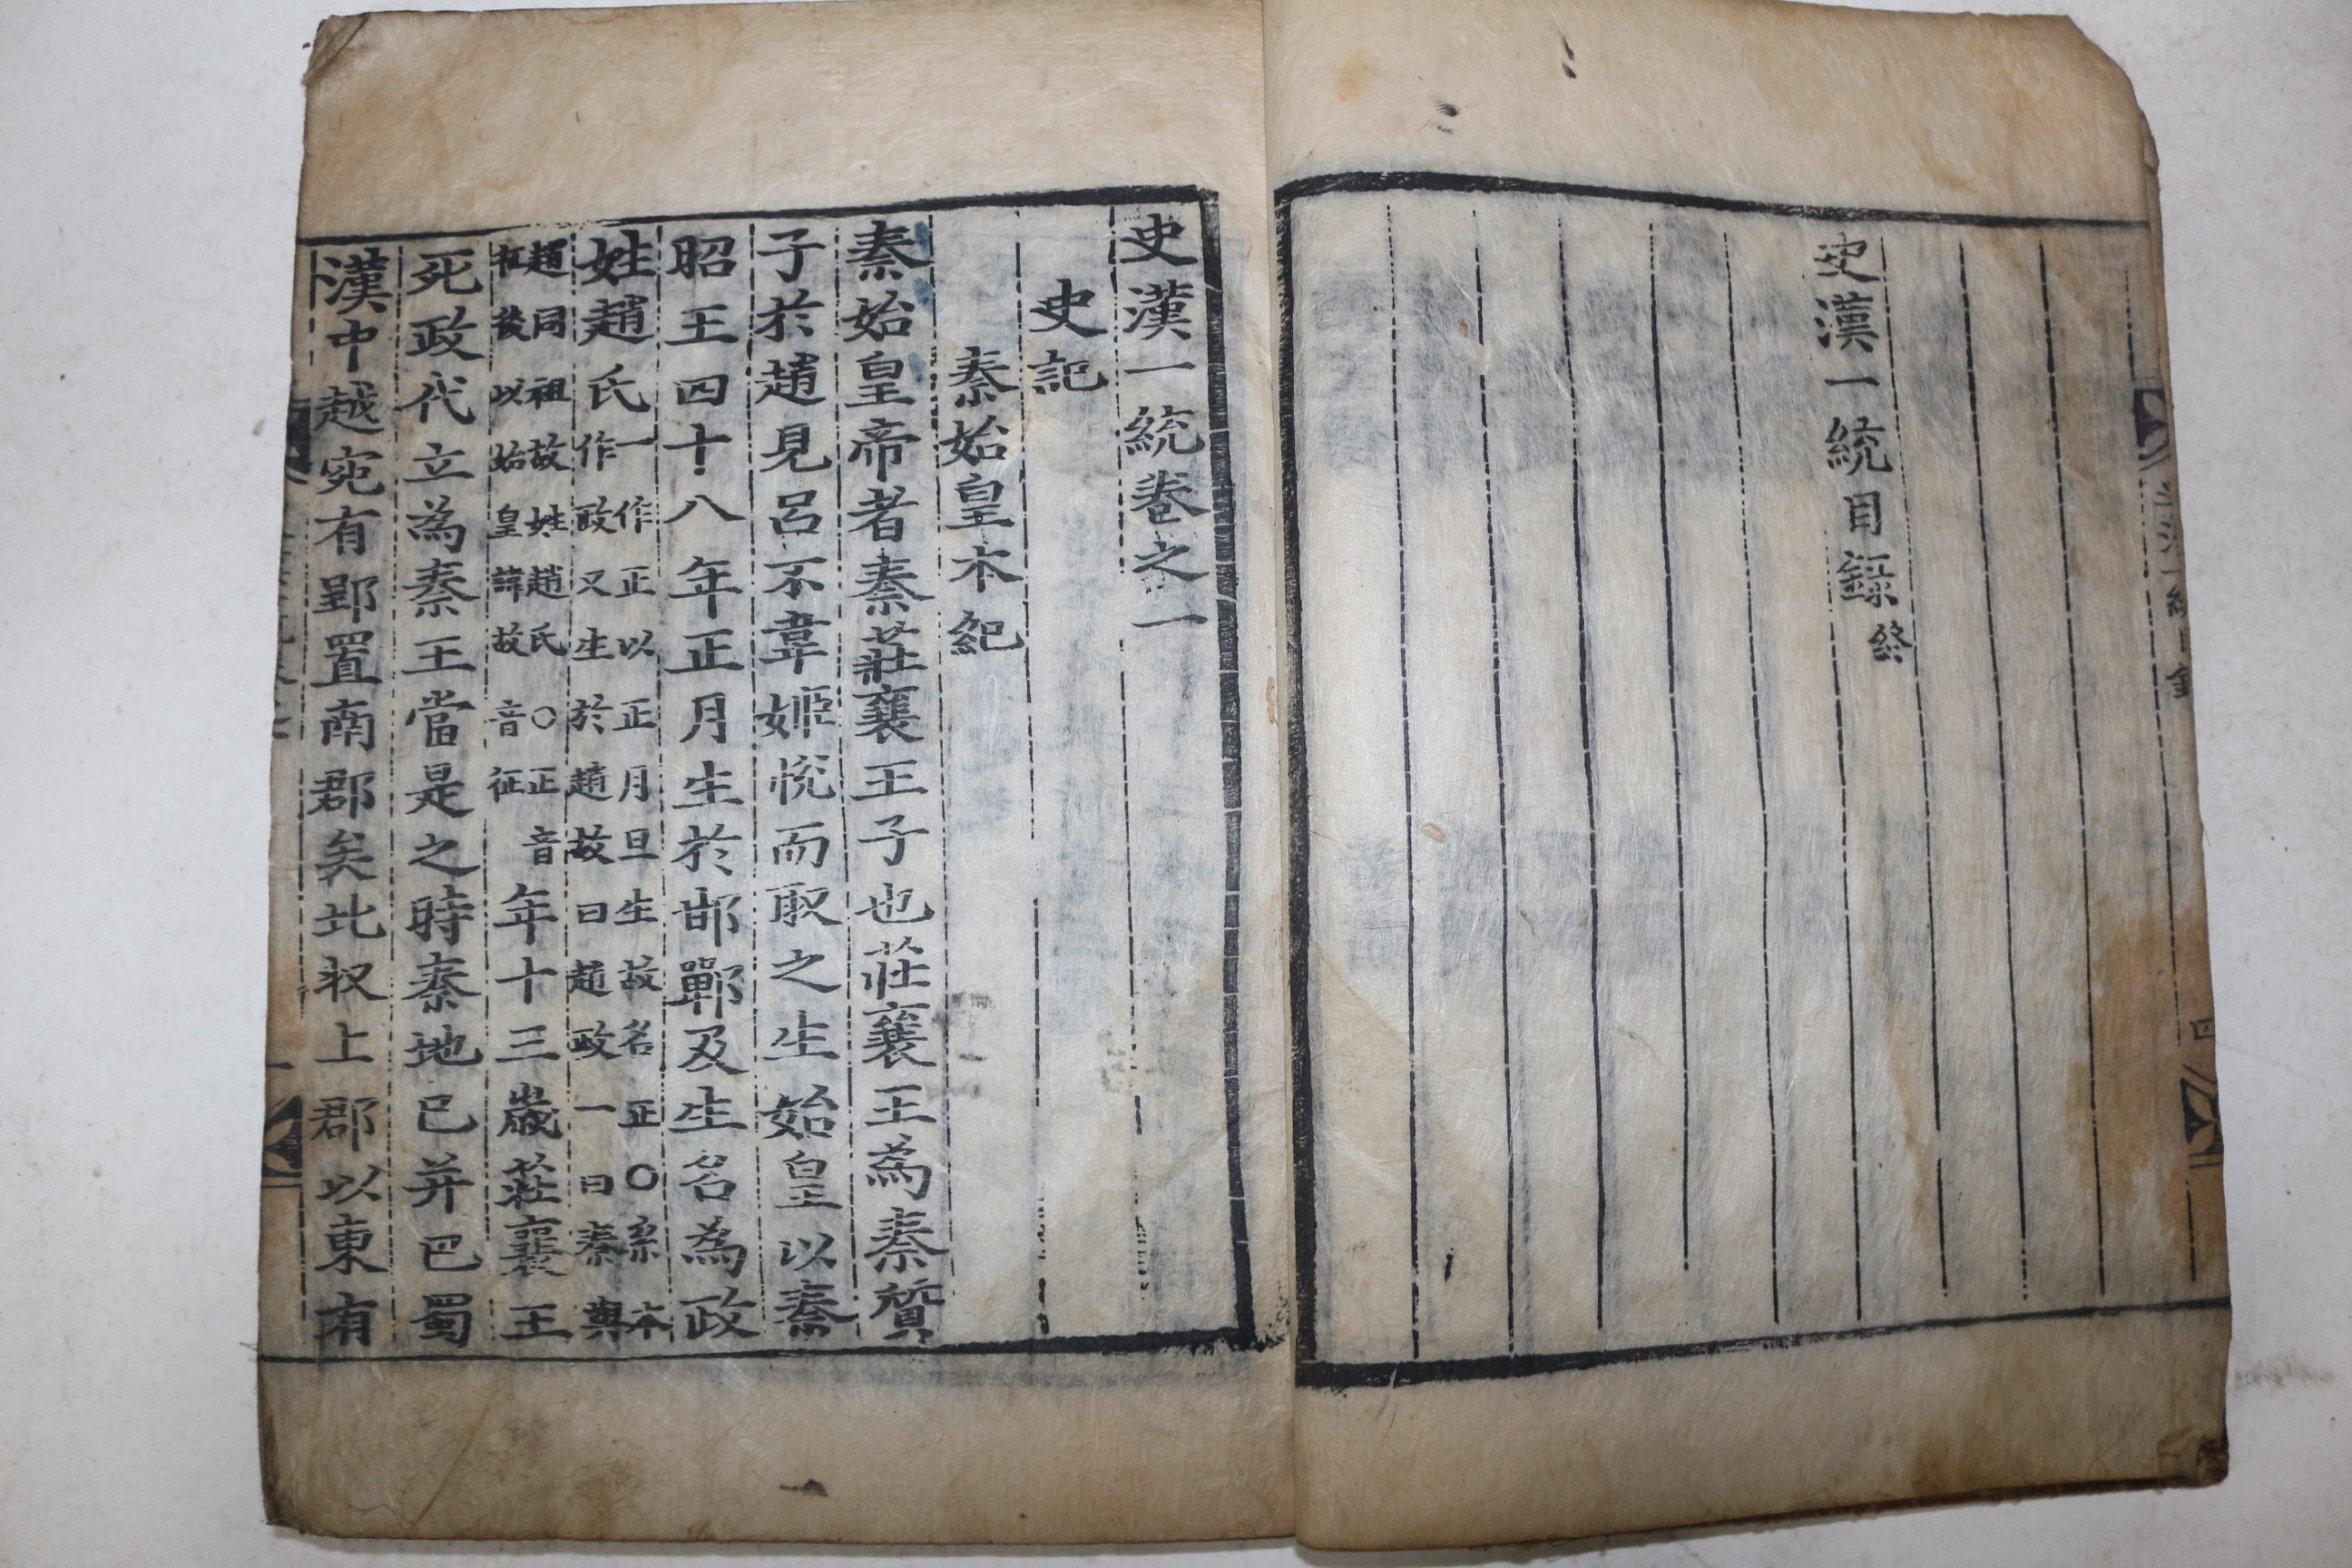 史漢一統目録終
史漢一統目録
四
史漢一統卷之一
史記
秦始皇本紀
秦始皇帝者秦莊襄王子也莊襄王爲秦質
子於趙見呂不韋姬悅而取之生始皇以秦
昭王四十八年正月生於邯鄲及生名爲政
姓趙氏一作正以正月旦生故名正○系本
作政又生於趙故曰趙政一曰秦與
趙同祖故姓趙氏○正音
征後以始皇諱故音征年十三歲莊襄王
死政代立為秦王當是之時秦地已并巴蜀
漢中越宛有郢置南郡矣北収上郡以東有
一